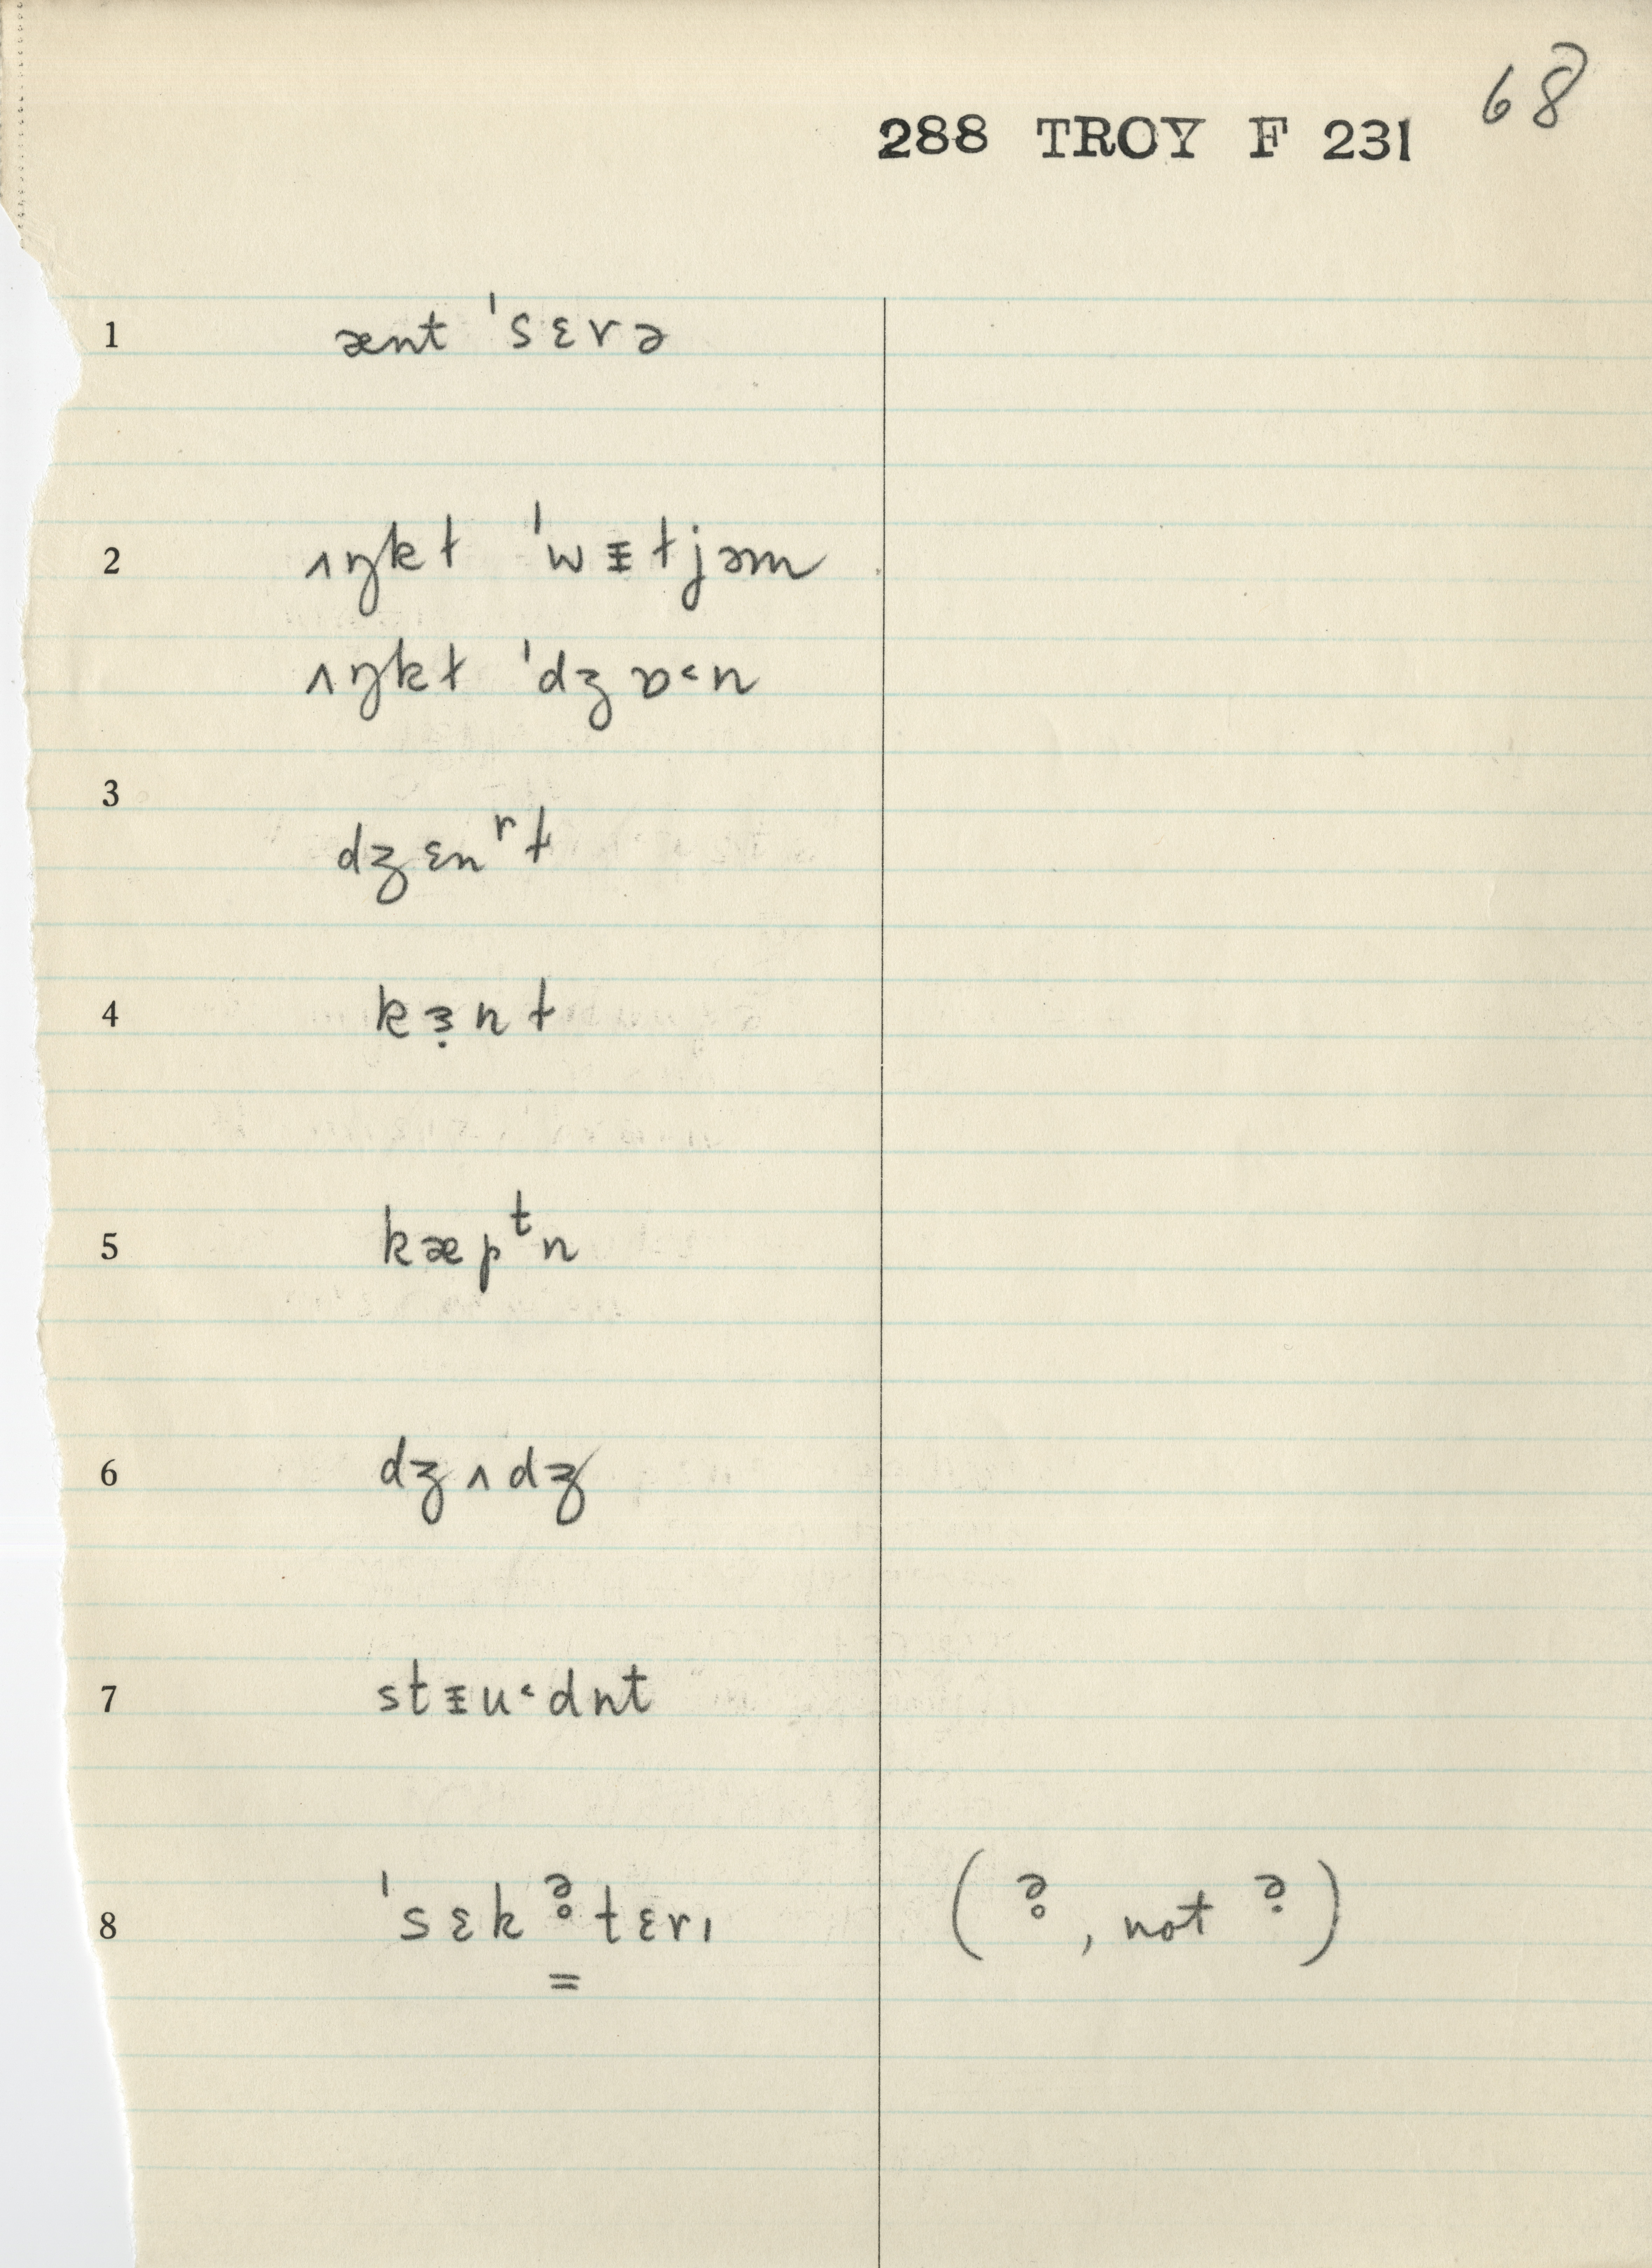 68
288 TROY F 231
1 ænt ˈsɛrə
2 ʌŋkɫ ˈwᵻɫjəm
ʌŋkɫ ˈdʒɒ˂n
3 dʒɛnʳɫ
4 kɜ̣nɫ
5 kæpᵗn
6 dʒʌdʒ
7 stᵻu˂dnt
8 ˈsɛkə̥tɛrɪ (ə̥, not ə̣)
=